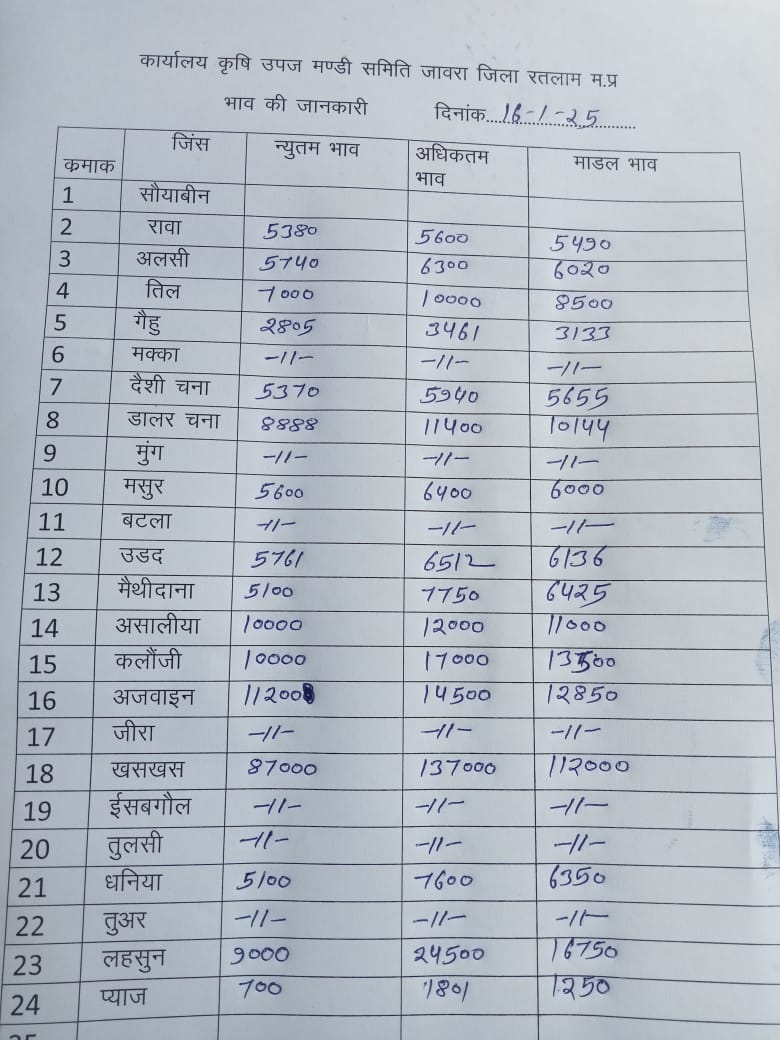 कार्यालय कृषि उपज मण्डी समिति जावरा जिला रतलाम म.प्र
भाव की जानकारी दिनांक....16-1-25......
कमाक जिंस न्युतम भाव अधिकतम भाव माडल भाव
1 सौयाबीन
2 रावा 5380 5600 5490
3 अलसी 5740 6300 6020
4 तिल 7000 10000 8500
5 गैहु 2805 3461 3133
6 मक्का -11- -11- -11-
7 दैशी चना 5370 5940 5655
8 डालर चना 8888 11400 10144
9 मुंग -11- -11- -11-
10 मसुर 5600 6400 6000
11 बटला -11- -11- -11-
12 उडद 5761 6512 6136
13 मैथीदाना 5100 7750 6425
14 असालीया 10000 12000 11000
15 कलौंजी 10000 17000 13500
16 अजवाइन 11200 14500 12850
17 जीरा -11- -11- -11-
18 खसखस 87000 137000 112000
19 ईसबगौल -11- -11- -11-
20 तुलसी -11- -11- -11-
21 धनिया 5100 7600 6350
22 तुअर -11- -11- -11-
23 लहसुन 9000 24500 16750
24 प्याज 700 1801 1250